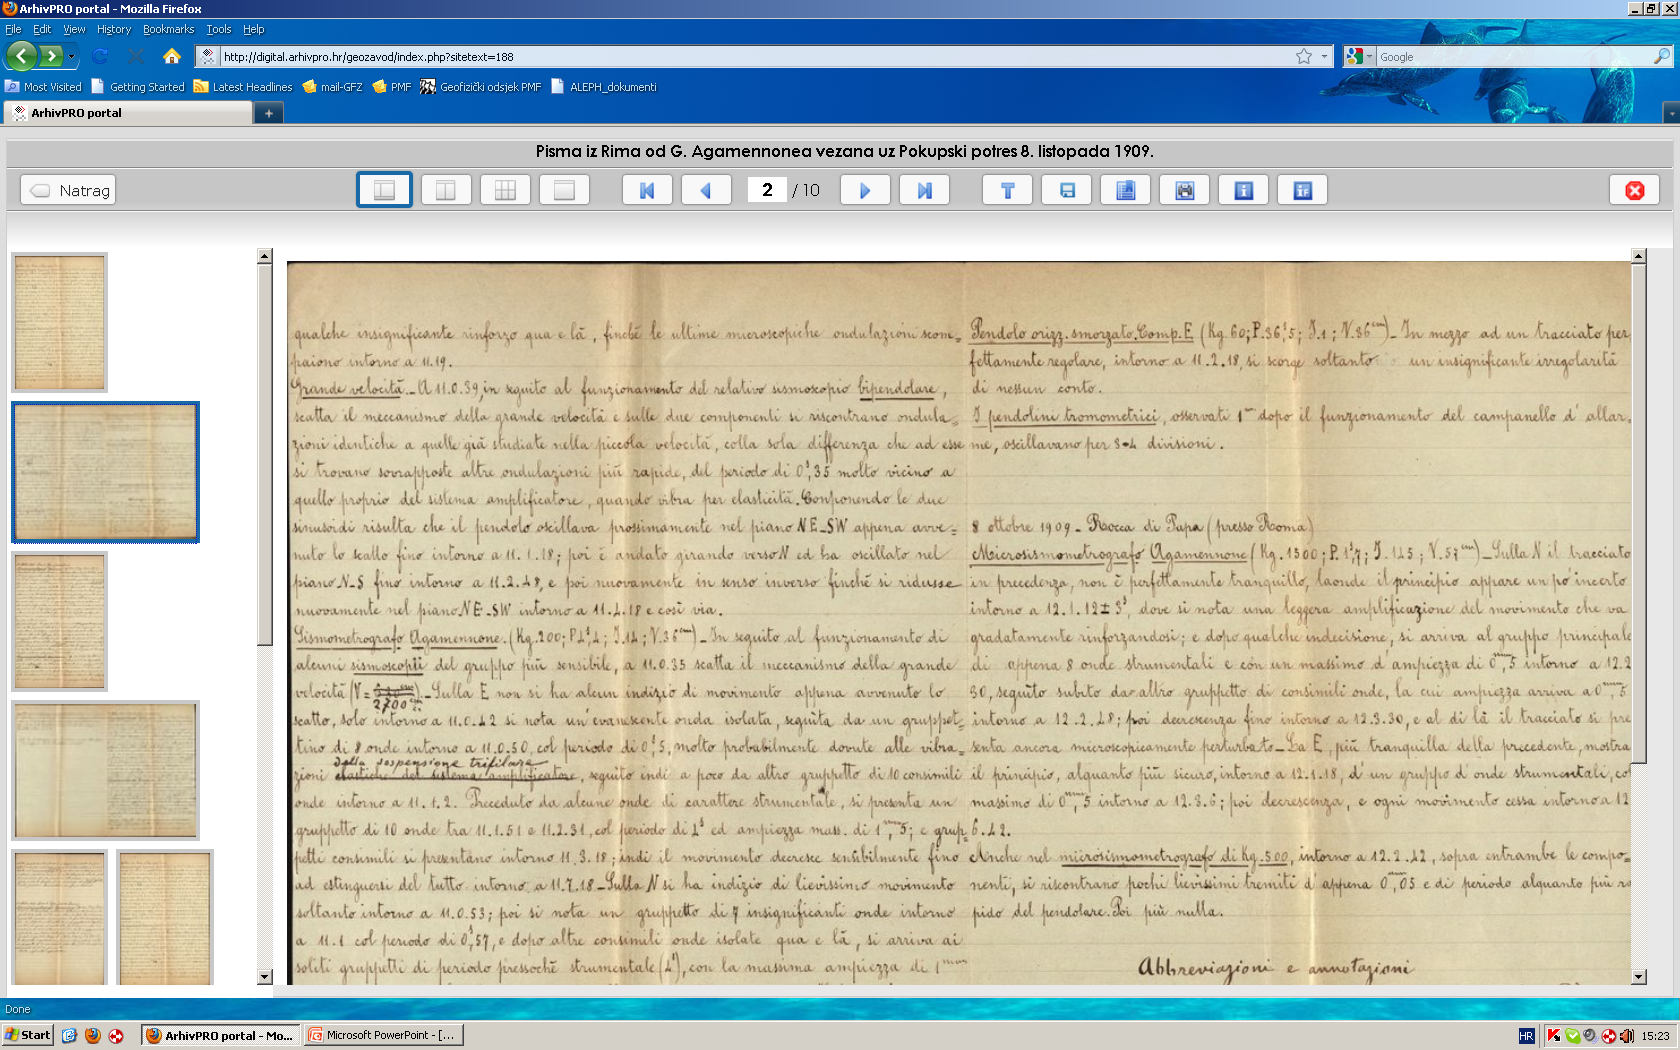 ArhivPRO portal - Mozilla Firefox
File Edit View History Bookmarks Tools Help
http://digital.arhivpro.hr/geozavod/index.php?sitetext=188
Google
Most Visited Getting Started Latest Headlines mail-GFZ PMF Geofizički odsjek PMF ALEPH_dokumenti
ArhivPRO portal
Pisma iz Rima od G. Agamennonea vezana uz Pokupski potres 8. listopada 1909.
Natrag 2 / 10 T i iF
qualche insignificante rinforzo qua e là, finchè le ultime microscopiche ondulazioni scom=
paiono intorno a 11.19.
Grande velocità._A 11.0.39, in seguito al funzionamento del relativo sismoscopio bipendolare,
scatta il meccanismo della grande velocità e sulle due componenti si riscontrano ondula=
zioni identiche a quelle già studiate nella piccola velocità, colla sola differenza che ad esse
si trovano sovrapposte altre ondulazioni più rapide, del periodo di 0,ˢ35 molto vicino a
quello proprio del sistema amplificatore, quando vibra per elasticità. Componendo le due
sinusoidi risulta che il pendolo oscillava prossimamente nel piano NE_SW appena avve=
nuto lo scatto fino intorno a 11.1.18; poi è andato girando verso N ed ha oscillato nel
piano N_S fino intorno a 11.2.48, e poi nuovamente in senso inverso finchè si ridusse
nuovamente nel piano NE_SW intorno a 11.4.18 e così via.
Sismometrografo Agamennone. (Kg.200; P.4ˢ,4; I.14; V.36ᶜᵐ)_In seguito al funzionamento di
alcuni sismoscopii del gruppo più sensibile, a 11.0.35 scatta il meccanismo della grande
velocità (V= 2700ᶜᵐ)._Sulla E non si ha alcun indizio di movimento appena avvenuto lo
scatto, solo intorno a 11.0.42 si nota un'evanescente onda isolata, seguita da un gruppet=
tino di 8 onde intorno a 11.0.50, col periodo di 0,ˢ5, molto probabilmente dovute alle vibra=
della sospensione trifilare
zioni elastiche del sistema amplificatore, seguito indi a poco da altro gruppetto di 10 consimili
onde intorno a 11.1.2. Preceduto da alcune onde di carattere strumentale, si presenta un
gruppetto di 10 onde tra 11.1.51 e 11.2.31, col periodo di 4ˢ ed ampiezza mass. di 1ᵐᵐ,5; e grup=
petti consimili si presentano intorno 11.3.18; indi il movimento decresce sensibilmente fino
ad estinguersi del tutto intorno a 11.7.18_Sulla N si ha indizio di lievissimo movimento
soltanto intorno a 11.0.53; poi si nota un gruppetto di 7 insignificanti onde intorno
a 11.1 col periodo di 0,ˢ57, e dopo altre consimili onde isolate qua e là, si arriva ai
soliti gruppetti di periodo pressochè strumentale (4ˢ), con la massima ampiezza di 1ᵐᵐ
Pendolo orizz. smorzato. Comp. E (Kg.60; P.36ˢ,5; I.1; V.36ᶜᵐ)_In mezzo ad un tracciato per
fettamente regolare, intorno a 11.2.18, si scorge soltanto un insignificante irregolarità
di nessun conto.
I pendolini tromometrici, osservati 1ᵐ dopo il funzionamento del campanello d'allar=
me, oscillavano per 3-4 divisioni.
8 ottobre 1909_Rocca di Papa (presso Roma)
Microsismometrografo Agamennone (Kg.1500; P.1ˢ,7; I.145; V.57ᶜᵐ)_Sulla N il tracciato
in precedenza, non è perfettamente tranquillo, laonde il principio appare un po' incerto
intorno a 12.1.12±3ˢ, dove si nota una leggera amplificazione del movimento che va
gradatamente rinforzandosi; e dopo qualche indecisione, si arriva al gruppo principale
di appena 8 onde strumentali e con un massimo d'ampiezza di 0ᵐᵐ,5 intorno a 12.2
30, seguito subito da altro gruppetto di consimili onde, la cui ampiezza arriva a 0ᵐᵐ,5
intorno a 12.2.48; poi decrescenza fino intorno a 12.3.30, e al di là il tracciato si pre
senta ancora microscopicamente perturbato_La E, più tranquilla della precedente, mostra
il principio, alquanto più sicuro, intorno a 12.1.18, d'un gruppo d'onde strumentali, col
massimo di 0ᵐᵐ,5 intorno a 12.3.6; poi decrescenza, e ogni movimento cessa intorno a 12
6.42.
Anche nel microsismometrografo di Kg.500, intorno a 12.2.42, sopra entrambe le compo=
nenti, si riscontrano pochi lievissimi tremiti d'appena 0ᵐᵐ,05 e di periodo alquanto più ra
pido del pendolare. Poi più nulla.
Abbreviazioni e annotazioni
Done
Start ArhivPRO portal - Mo... Microsoft PowerPoint - [... HR 15:23